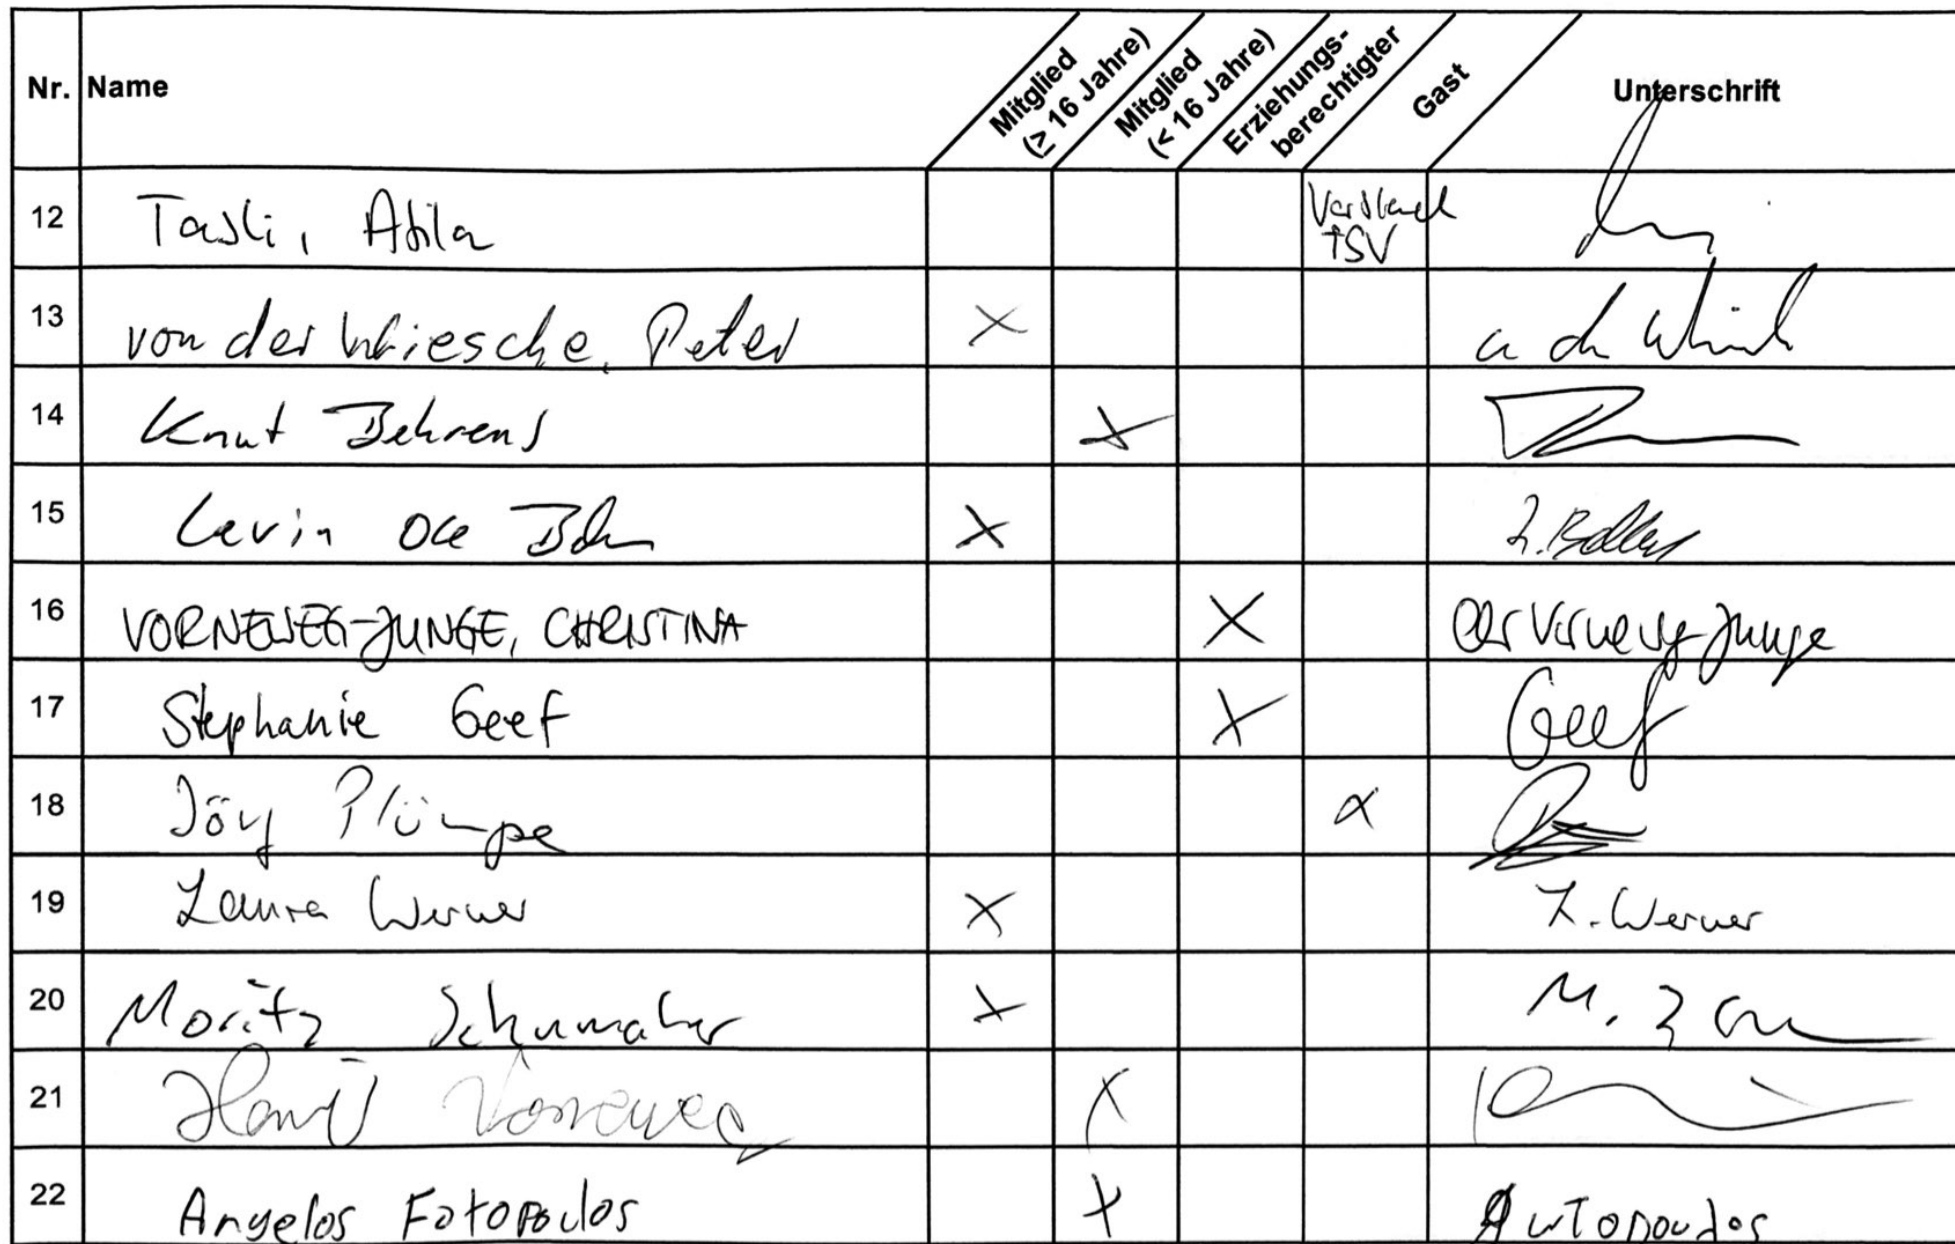 Nr. Name Mitglied (≥ 16 Jahre) Mitglied (< 16 Jahre) Erziehungs-berechtigter Gast Unterschrift
12 Tasli, Atila Vorstand TSV
13 von der Wiesche, Peter X
14 Knut Behrens X
15 Levin Ole X
16 VORNEWEG-JUNGE, CHRISTINA X Vorneweg-Junge
17 Stephanie Geef X Geef
18 Jörg Plümpe X
19 Laura Werner X L. Werner
20 Moritz Schumacher X M.
21 Vorneweg X
22 Angelos Fotopoulos X